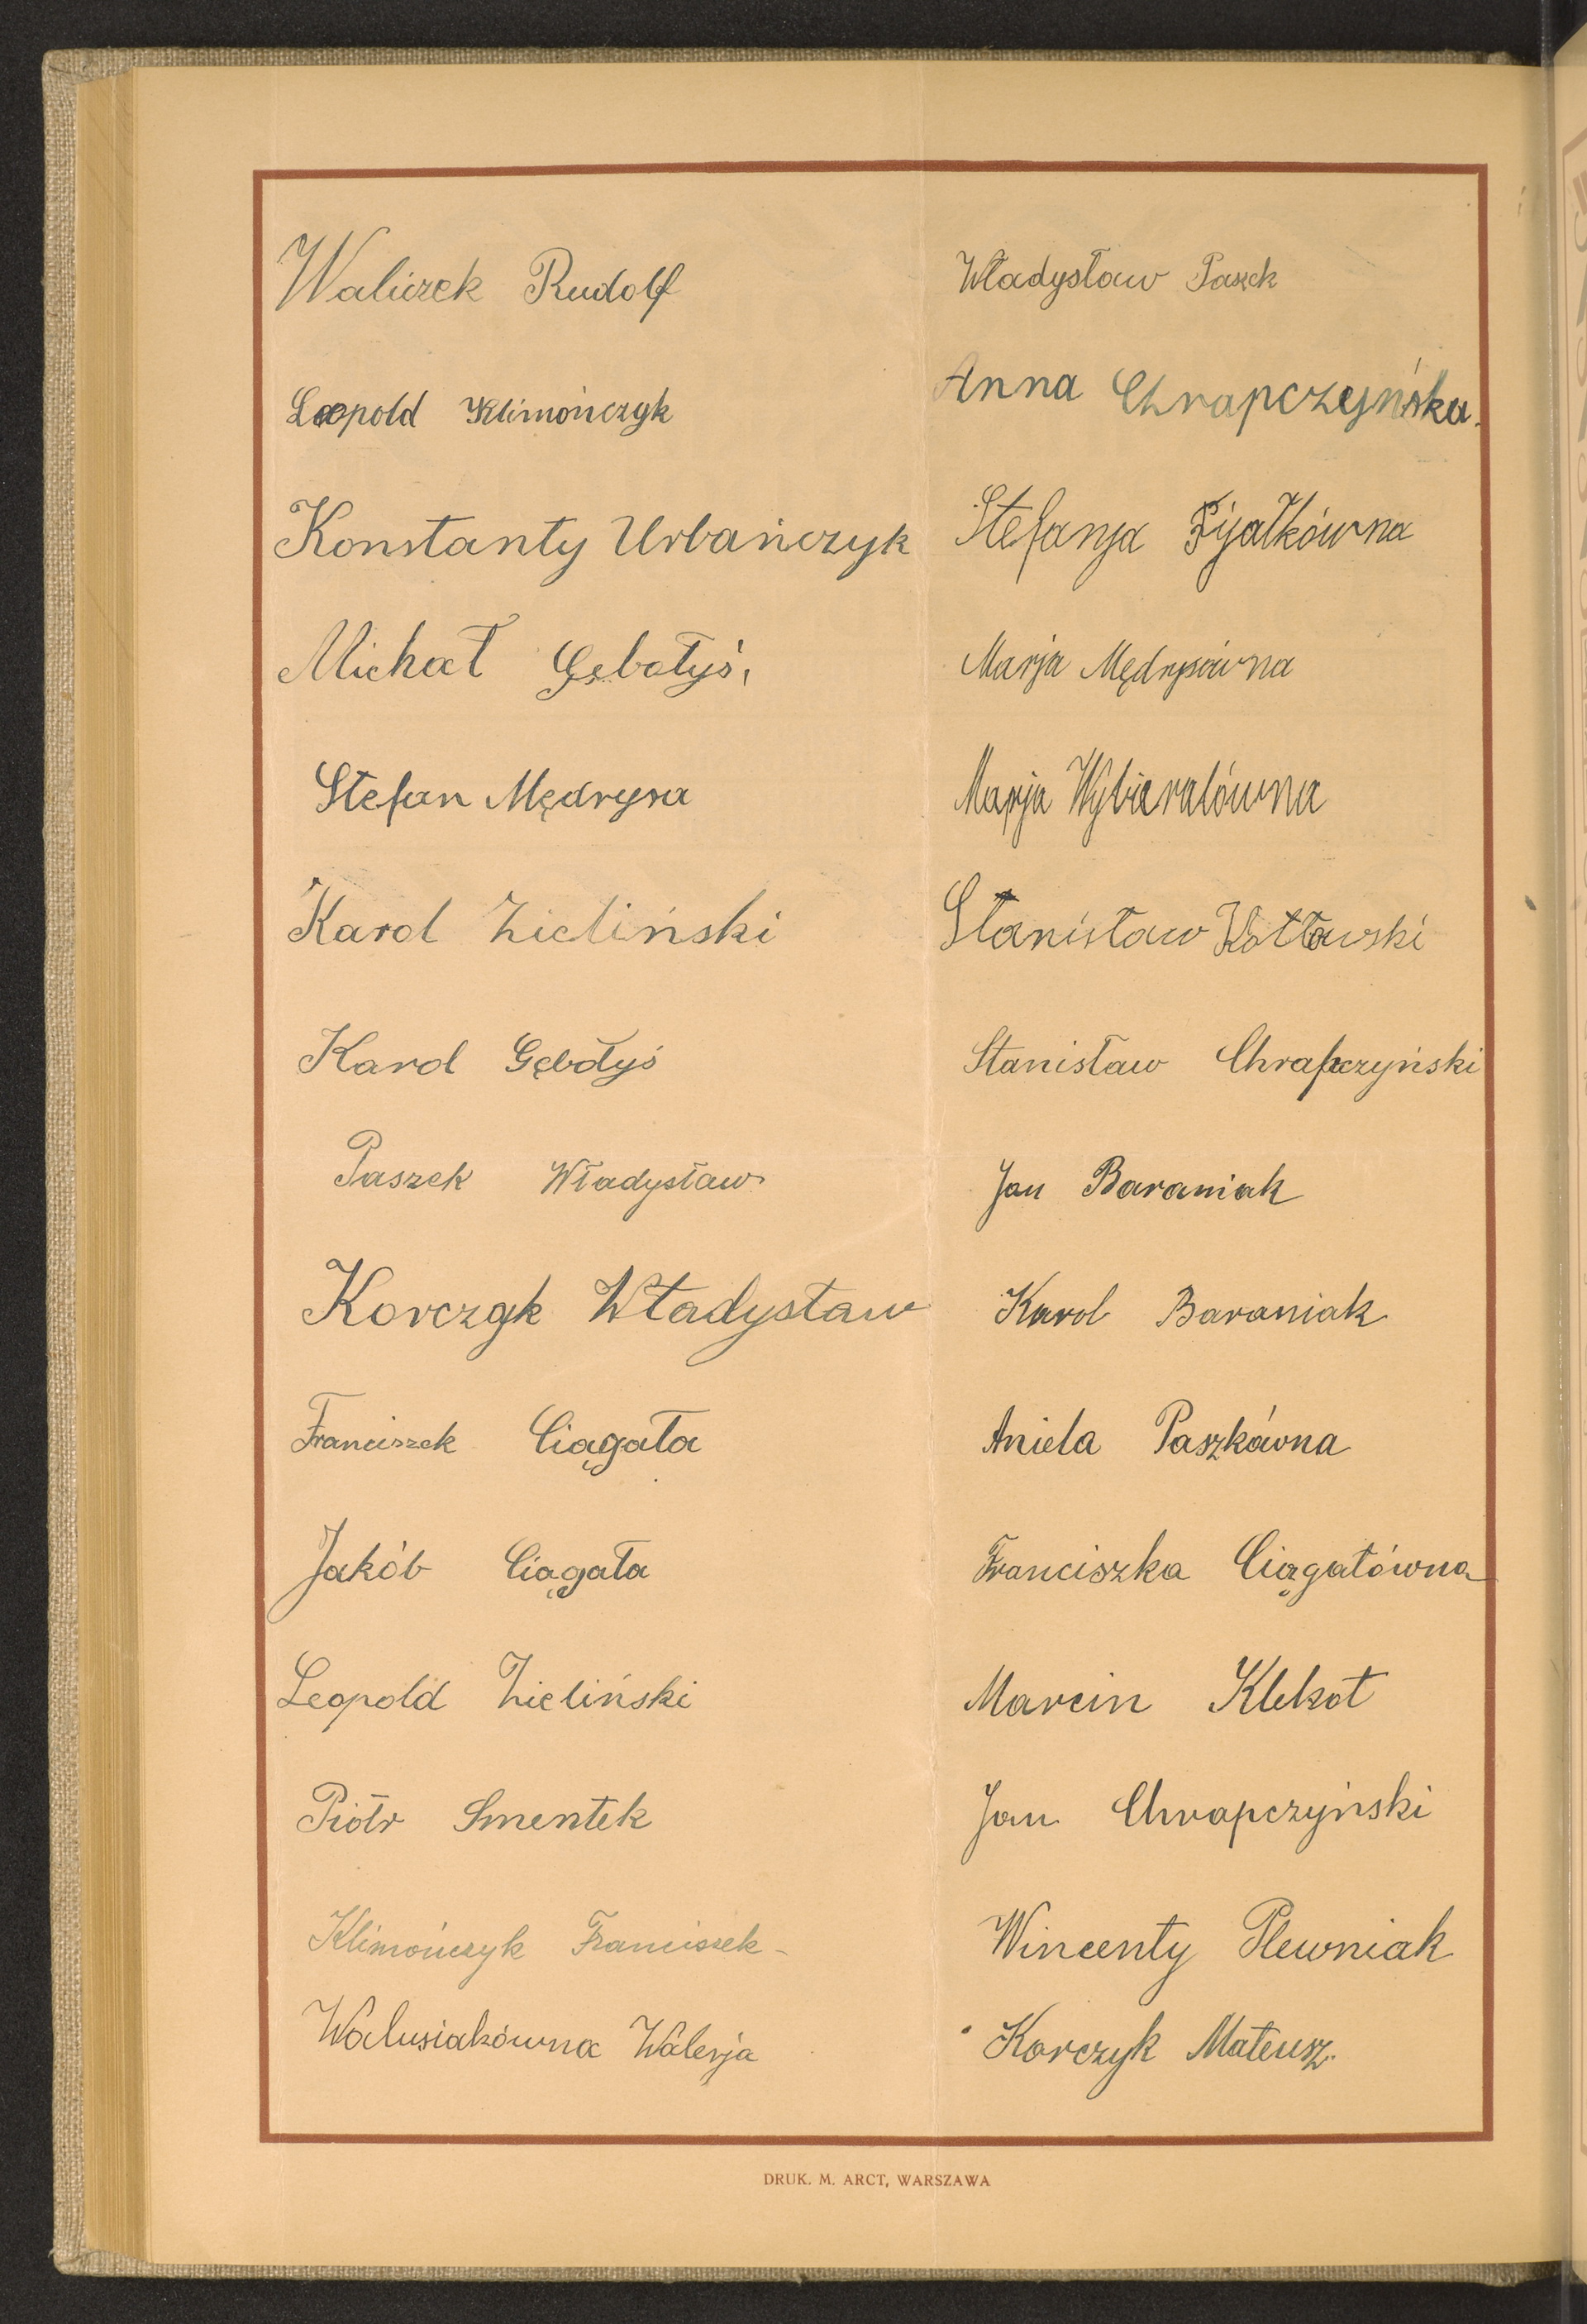 Waliczek Rudolf
Leopold Klimończyk
Konstanty Urbańczyk
Michał Gębołyś,
Stefan Mędrysa
Karol Zieliński
Karol Gębołyś
Paszek Władysław
Korczyk Władysław
Franciszek Ciągała
Jakób Ciągała
Leopold Zieliński
Piotr Smentek
Klimończyk Franciszek
Walusiakówna Walerja
Władysław Pasek
Anna Chrapczyńska.
Stefanja Fijałkówna
Marja Mędrysówna
Marja Wybierałówna
Stanisław Kotłowski
Stanisław Chrapczyński
Jan Baraniak
Karol Baraniak
Aniela Paszkówna
Franciszka Ciągałówna
Marcin Klekot
Jan Chrapczyński
Wincenty Plewniak
Korczyk Mateusz.
DRUK. M. ARCT, WARSZAWA